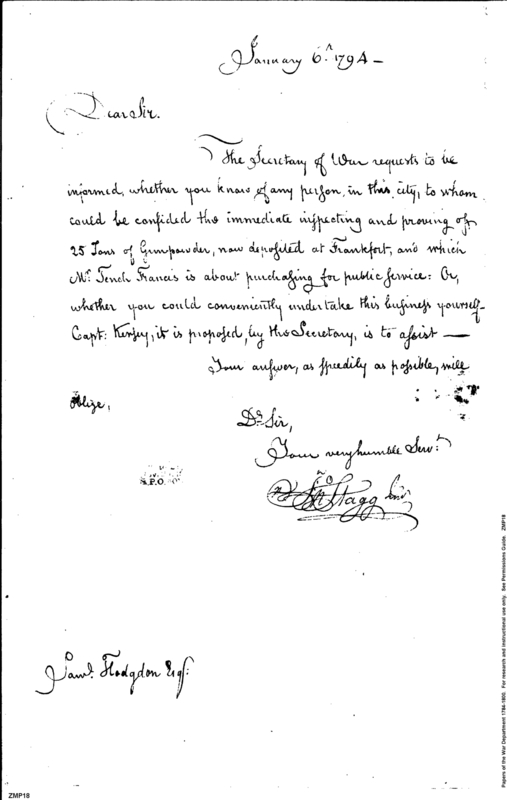 January 6th 1794 —
Dear Sir.
The Secretary of War requests to be
informed, whether you know of any person, in this city, to whom
could be confided the immediate inspecting and proving of
25 Tons of Gunpowder, now deposited at Frankfort, and which
Mr. Tench Francis is about purchasing for public service: Or,
whether you could conveniently undertake this business yourself—
Capt: Kersey, it is proposed, by the Secretary, is to assist —
Your answer, as speedily as possible, will
oblige,
Dr. Sir,
Your very humble Servt.
Jno Stagg Junr
Saml. Hodgdon Esqr:
Papers of the War Department 1784-1800. For research and instructional use only. See Permissions Guide. ZMP18
ZMP18